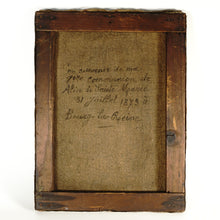 en souvenir de ma
1ère communion de
Alix de Sainte Marie
31 juillet 1873 à
Bourg la Reine